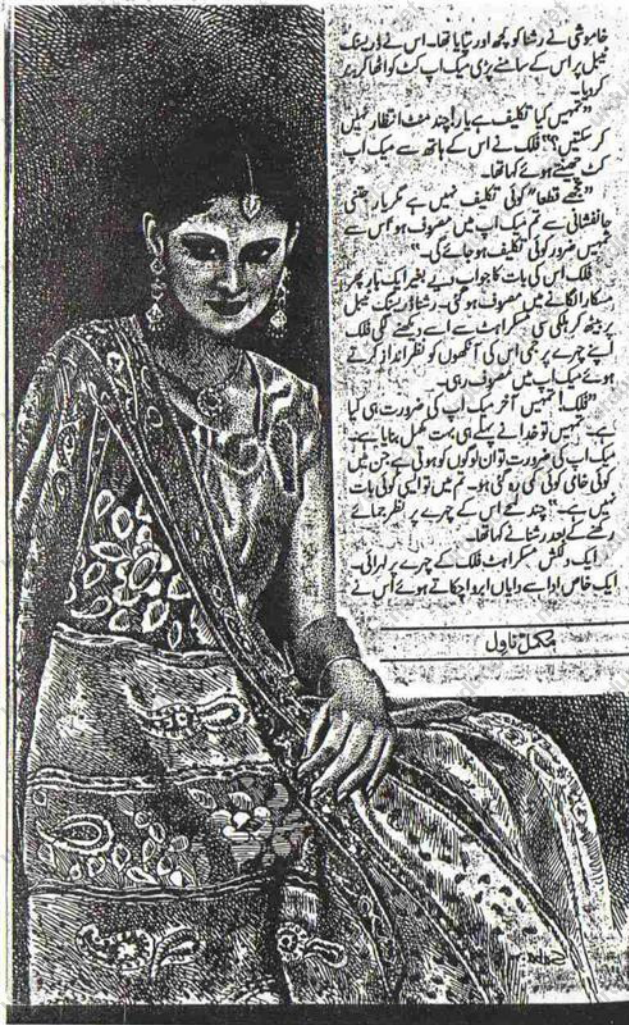 خاموشی نے رشنا کو کچھ اور تپایا تھا۔ اس نے ڈریسنگ
ٹیبل پر اس کے سامنے پڑی میک اپ کٹ کو اٹھا کر بند
کر دیا۔
"تمہیں کیا تکلیف ہے یار! چند منٹ انتظار نہیں
کر سکتیں؟" فلک نے اس کے ہاتھ سے میک اپ
کٹ چھینتے ہوئے کہا تھا۔
"مجھے قطعا" کوئی تکلیف نہیں ہے مگر یار جتنی
جانفشانی سے تم میک اپ میں مصروف ہو اس سے
تمہیں ضرور کوئی تکلیف ہو جائے گی۔"
فلک اس کی بات کا جواب دیے بغیر ایک بار پھر
مسکارا لگانے میں مصروف ہو گئی۔ رشنا ڈریسنگ ٹیبل
پر بیٹھ کر ہلکی سی مسکراہٹ سے اسے دیکھنے لگی فلک
اپنے چہرے پر جمی اس کی آنکھوں کو نظر انداز کرتے
ہوئے میک اپ میں مصروف رہی۔
"فلک! تمہیں آخر میک اپ کی ضرورت ہی کیا
ہے۔ تمہیں تو خدا نے پہلے ہی بہت مکمل بنایا ہے۔
میک اپ کی ضرورت تو ان لوگوں کو ہوتی ہے جن میں
کوئی خامی کوئی کمی رہ گئی ہو۔ تم میں تو ایسی کوئی بات
نہیں ہے۔" چند لمحے اس کے چہرے پر نظر جمائے
رکھنے کے بعد رشنا نے کہا تھا۔
ایک دلکش مسکراہٹ فلک کے چہرے پر لہرائی۔
ایک خاص ادا سے دایاں ابرو اچکاتے ہوئے اس نے
مکمل ناول